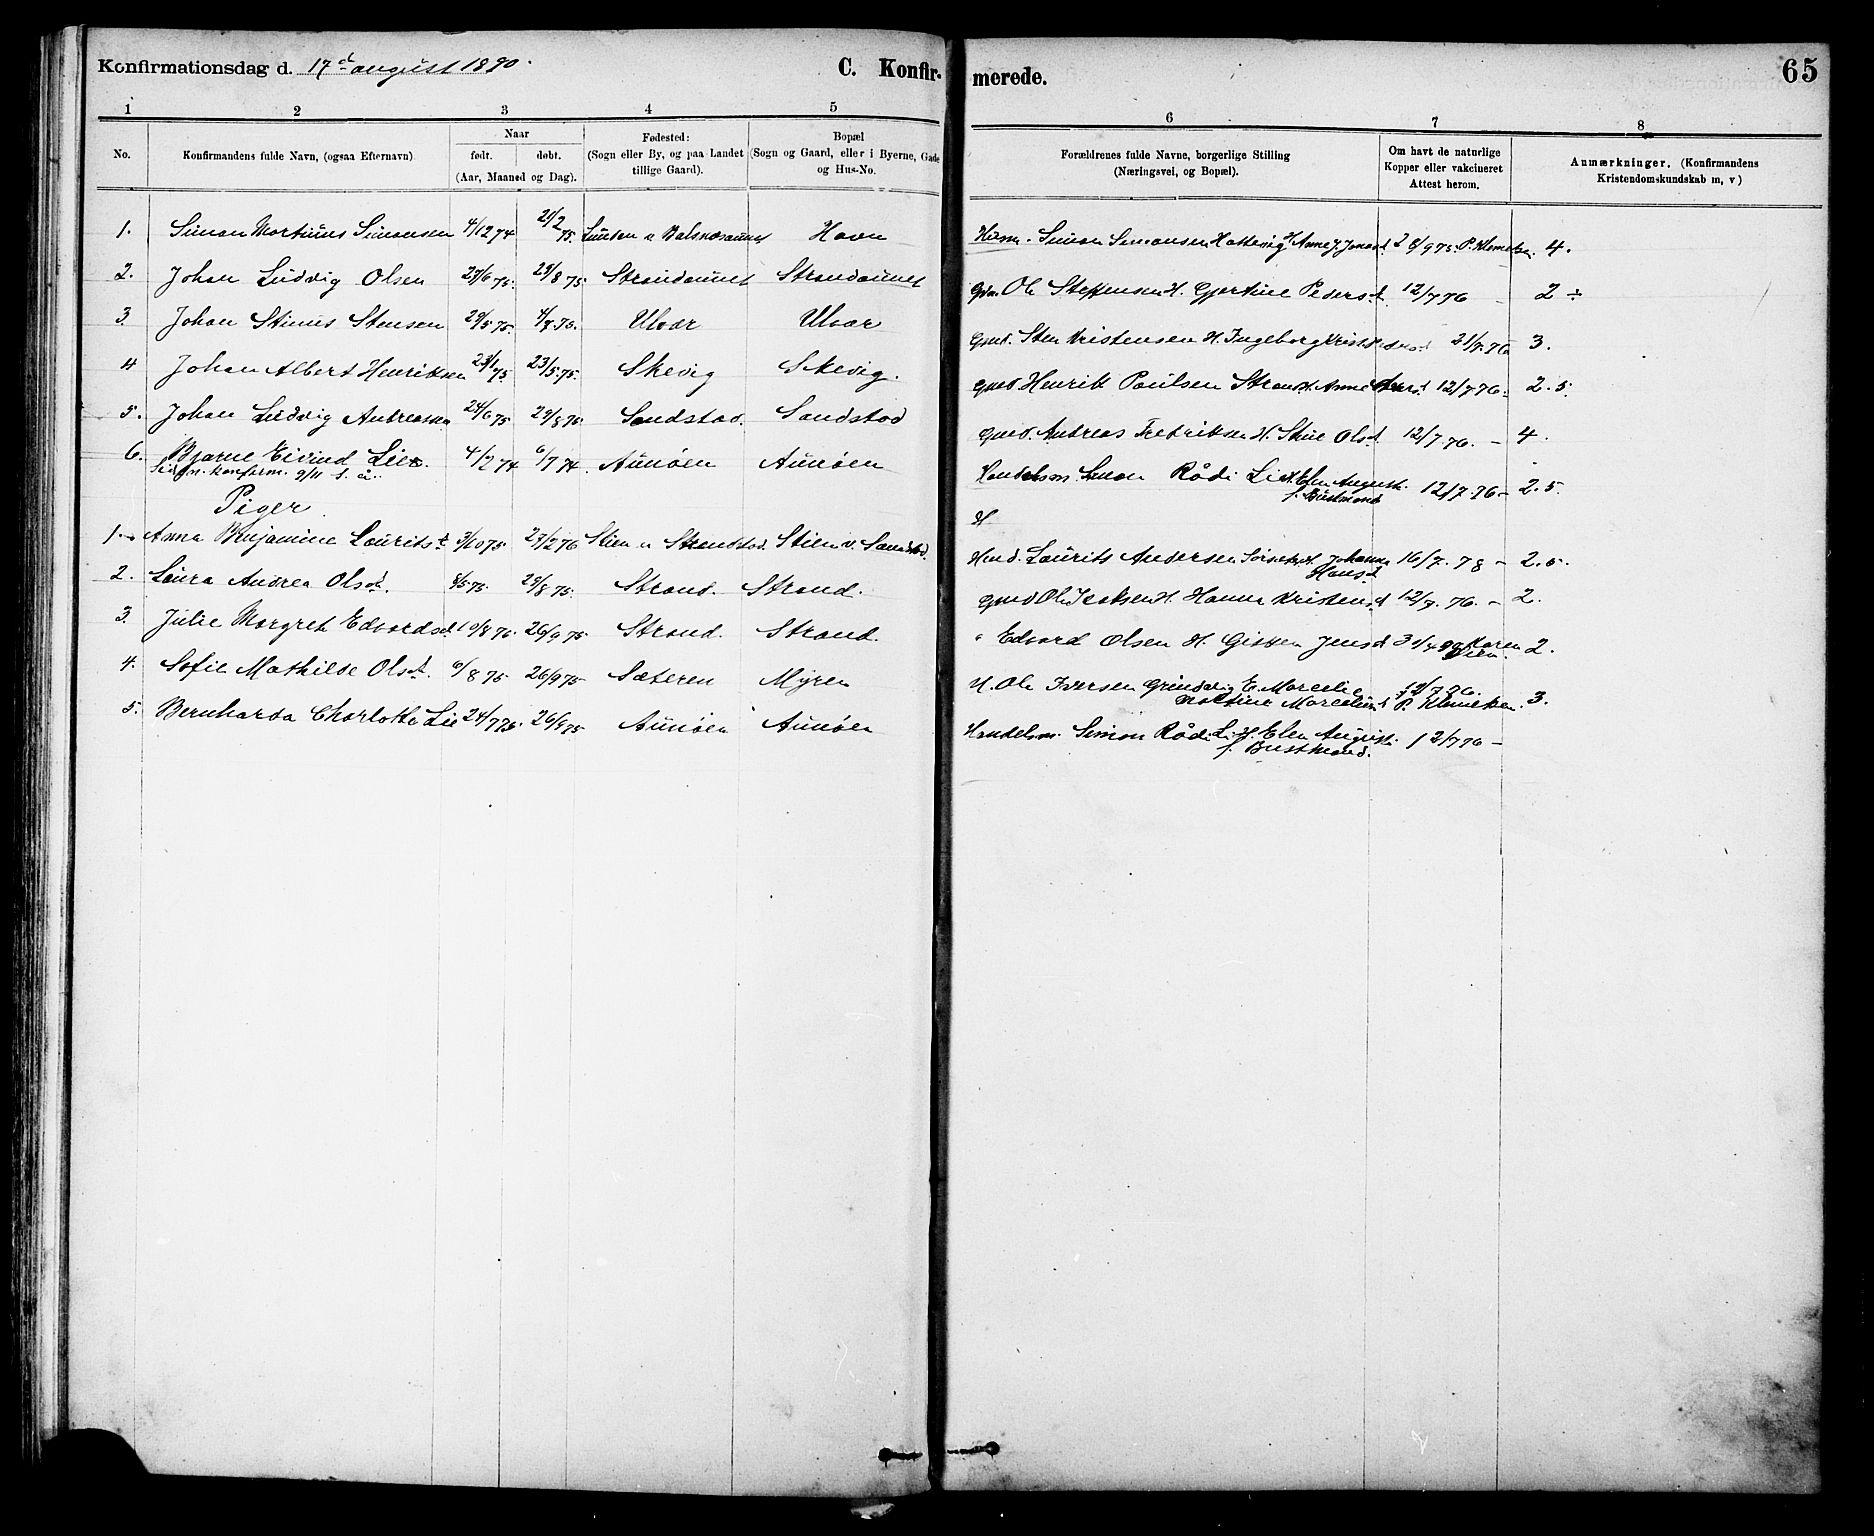 Konfirmationsdag d. 17de august 1890. C. Konfir-merede. 65
1 2 3 4 5 6 7 8
No. Konfirmandens fulde Navn, (ogsaa Efternavn) Naar født. døbt. (Aar, Maaned og Dag). Fødested: (Sogn eller By, og paa Landet tillige Gaard). Bopæl (Sogn og Gaard, eller i Byerne, Gade og Hus-No. Forældrenes fulde Navne, borgerlige Stilling (Næringsvei, og Bopæl). Om havt de naturlige Kopper eller vakcineret Attest herom. Anmærkninger. (Konfirmandens Kristendomskundskab m, v)
1. Simon Martinus Simonsen 4/12 74 21/2 75. Havn Simon Simonsen Hattevig H. Anne J. Jonasd. 28/9 75. P. Klemetsen. 4.
2. Johan Ludvig Olsen 27/6 75. 29/8 75. Strandaunet Strandaunet Gdm. Ole Steffensen H. Gjertine Pedersd. 12/7 76 - 2 ÷
3. Johan Stinus Stensen 29/5 75. 4/7. 75. Ulvær Ulvær Gmd. Sten Kristensen H. Ingeborg 21/7. 76 3.
4 Johan Albert Henriksen 23/1 75 23/5. 75. Skevig Skevig. Gmd. Henrik Paulsen Strand H. Anne 12/7 76 - 2. 5.
5. Johan Ludvig Andreassen 24/6 75 29/8 75. Sandstad. Sandstad Gmd. Andreas Fredriksen H. Stine Olsd. 12/7. 76. - 4.
6. Bjarne Eivind Lie. 4/2 74 6/7 74. Aunøen Aunøen Handelsm. Simon Rådi Lie H. Elen August. 12/7. 76 - 2. 5.
konfirm. 9/11 s. å. f. Bustmand
Piger. H
1. Anna Benjamine Lauritsd. 3/10 75 27/2 76 Stien u Sandstad. Stien u. Sandstad. Hmd. Laurits Andersen H. Johanna Hansd. 16/7. 78 - 2. 5.
2. Laura Andrea Olsd. 8/5 75. 29/8 75. Strand. Strand. Gmd Ole Isaksen H. Hanna Kristensd. 12/7. 76. - 2.
3. Julie Margrete Edvardsd 10/8 75. 26/9 75. Strand. Strand. " Edvard Olsen H. Gisken Jensd. 2.
4. Sofie Mathilde Olsd. 6/8 75 26/9 75 - Sæteren Myren Ole Iversen Grindvig E. Marcelie 12/7 76.
P. Klemetsen. 3.
5. Bernharda Charlotte Lie 24/7 75. 26/9 75 Aunøen Aunøen Handelsm. Simon Rådi Lie H. Elen August. 12/7 76 -
f. Bustmand.